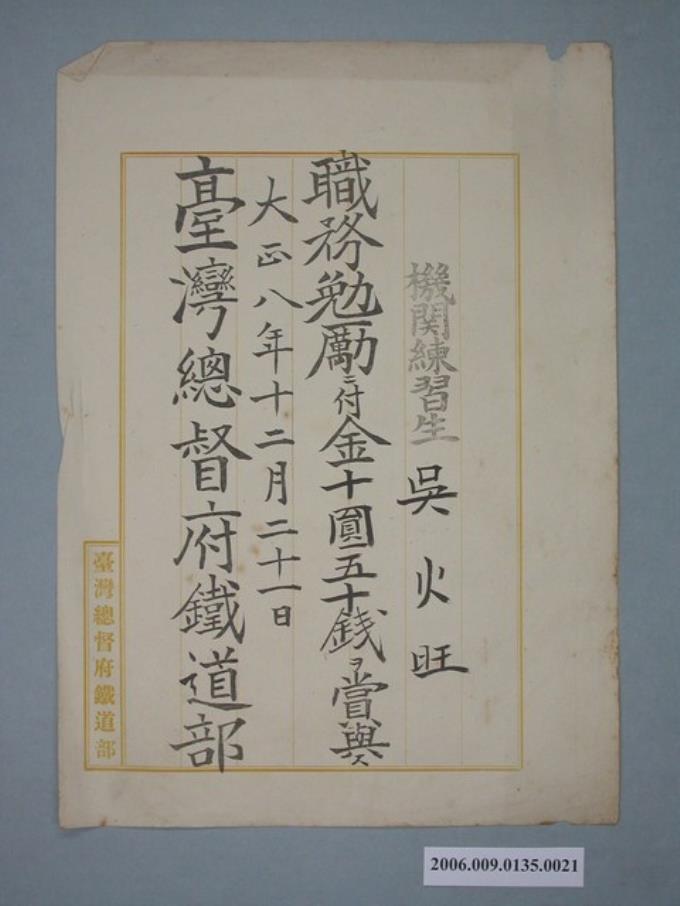 機関練習生 吳火旺
職務勉勵ニ付金十圓五十銭ヲ賞與ス
大正八年十二月二十一日
臺灣總督府鐵道部
臺灣總督府鐵道部
2006.009.0135.0021